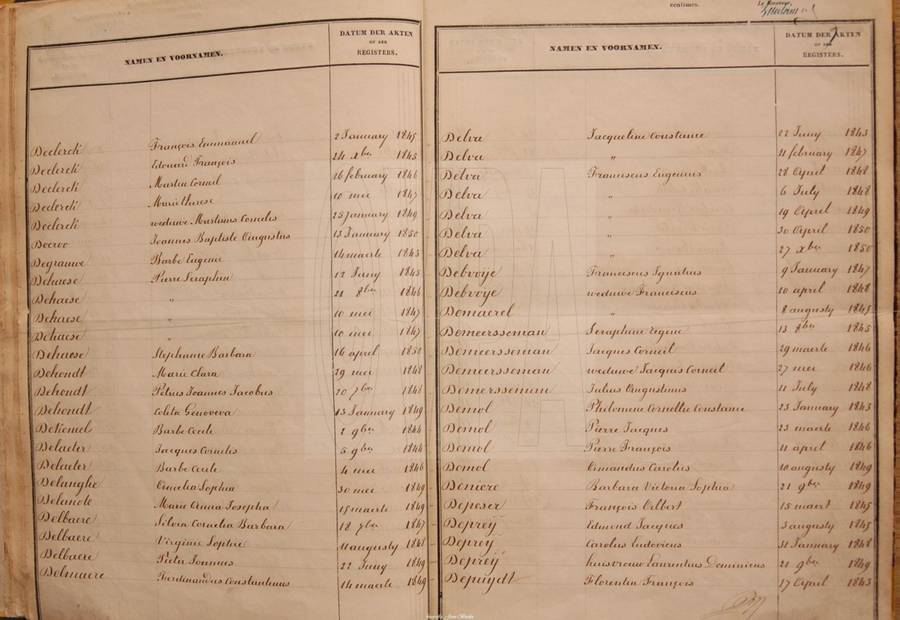 NAMEN EN VOORNAMEN.
DATUM DER AKTEN
OF DER
REGISTERS.
Declerck François Emmanuel 2 January 1845
Declerck Edouard François 24 xber 1843
Declerck Martin Corneil 16 february 1846
Declerck Marie therese 10 mei 1847
Declerck weduwe Martinus Cornelis 25 january 1849
Decroo Joannes Baptiste Augustus 13 January 1850
Degrauwe Barbe Eugenie 14 maerte 1843
Dehaese Pierre Seraphin 12 Juny 1845
Dehaese " 21 8ber 1846
Dehaese " 10 mei 1847
Dehaese " 10 mei 1847
Dehaese Stephanie Barbara 16 april 1850
Dehondt Marie Clara 29 mei 1848
Dehondt Petrus Joannes Jacobus 20 7ber 1848
Dehondt Coleta Genoveva 13 January 1849
Barbe Cecile 2 9ber 1844
Delaeter Jacques Cornelis 5 9ber 1844
Delaeter Barbe Cecile 4 mei 1846
Delanghe Cornelia Sophia 30 mei 1849
Delanote Marie Anna Josepha 15 maerte 1849
Delbaere Cornelia Barbara 18 7ber 1847
Delbaere Virginie Sophie 11 augusty 1848
Delbaere Pieter Joannes 22 Juny 1849
Delmaere Ferdinandus Constantinus 14 maerte 1849
centimes.
NAMEN EN VOORNAMEN.
DATUM DER AKTEN
OF DER
REGISTERS.
Delva Jacqueline Constance 12 Juny 1843
Delva " 11 february 1847
Delva Franciscus Eugenius 28 April 1848
Delva " 6 July 1848
Delva " 19 April 1849
Delva " 30 April 1850
Delva " 27 xber 1850
Debvoije Franciscus Ignatius 9 January 1847
Debvoije weduwe Franciscus 10 april 1848
Demaerel 8 augusty 1845
Demeersseman Seraphine regine 13 8ber 1845
Demeersseman Jacques Corneil 29 maerte 1846
Demeersseman weduwe Jacques Corneil 27 mei 1846
Demersseman Julius Augustinus 11 July 1848
Demol Philomene Cornellie Constance 25 January 1843
Demol Pierre Jacques 25 maerte 1846
Demol Pierre François 11 april 1846
Demol Armandus Carolus 10 augusty 1849
Deniere Barbara Victoria Sophia 21 9ber 1849
Deposer François Albert 15 maert 1845
Deprey Edmond Jacques 3 augusty 1845
Deprey Carolus Ludovicus 31 January 1848
Deprey huisvrouw Laurentius Dominicus 21 9ber 1849
Depuydt Florentin François 17 April 1843